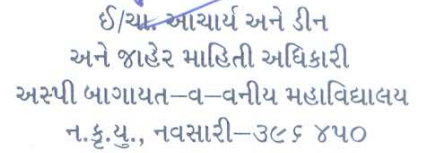 ઈ/ચા. આચાર્ય અને ડીન
અને જાહેર માહિતી અધિકારી
અસ્પી બાગાયત–વ–વનીય મહાવિદ્યાલય
ન.કૃ.યુ., નવસારી–૩૯૬ ૪૫૦